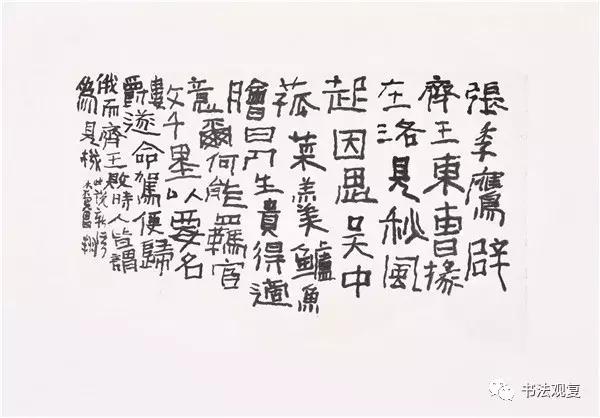 張季鷹辟
齊王東曹掾
在洛見秋風
起因思吳中
菰菜羹鱸魚
膾曰人生貴得適
意爾何能羈宦
千里以要名
爵遂命駕便歸
俄而齊王敗時人皆謂
為見機
书法观复